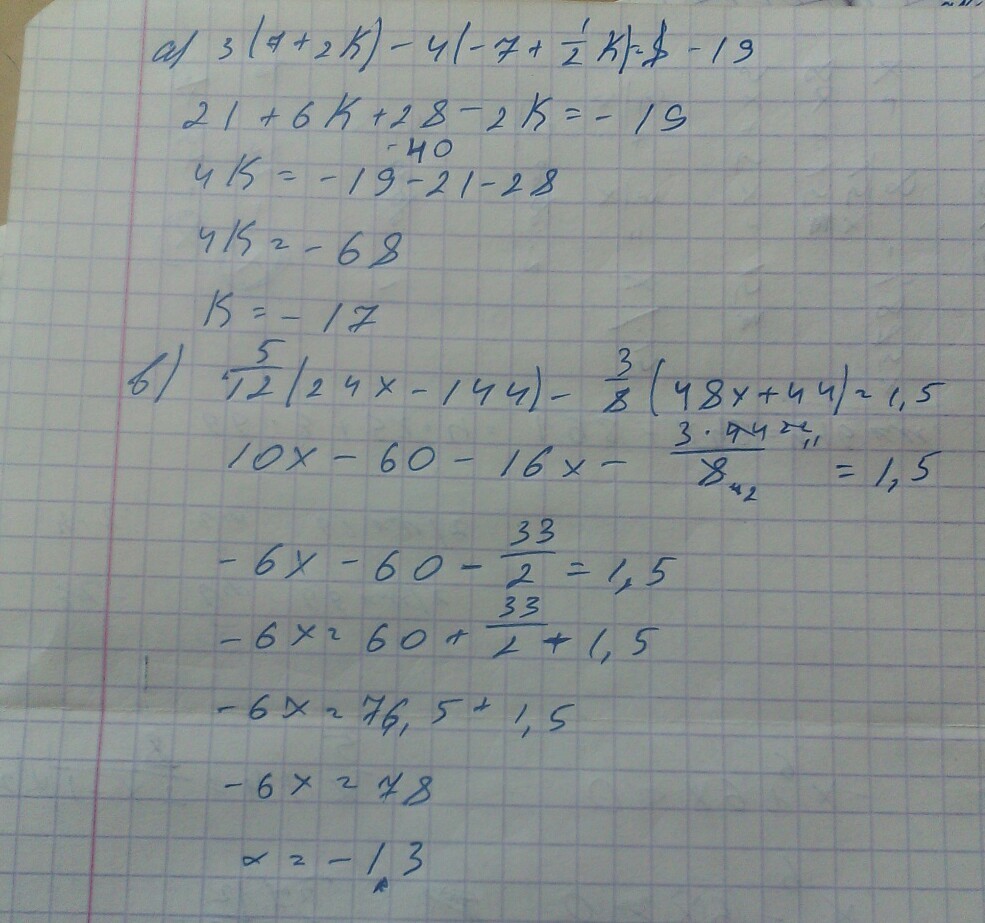 а) 3(7+2К) - 4(-7 + 1/2 К) = -19
21 + 6К + 28 - 2К = - 19
-40
4К = -19 - 21 - 28
4К = - 68
К = - 17
в) 5/12 (24х - 144) - 3/8 (48х + 44) = 1,5
10х - 60 - 16х - 3·44 11/8 2 = 1,5
- 6х - 60 - 33/2 = 1,5
- 6х = 60 + 33/2 + 1,5
- 6х = 76,5 + 1,5
- 6х = 78
х = - 13